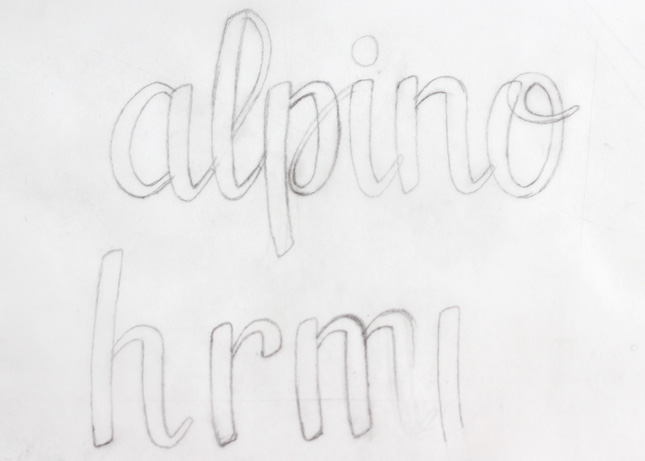 alpino
hrm